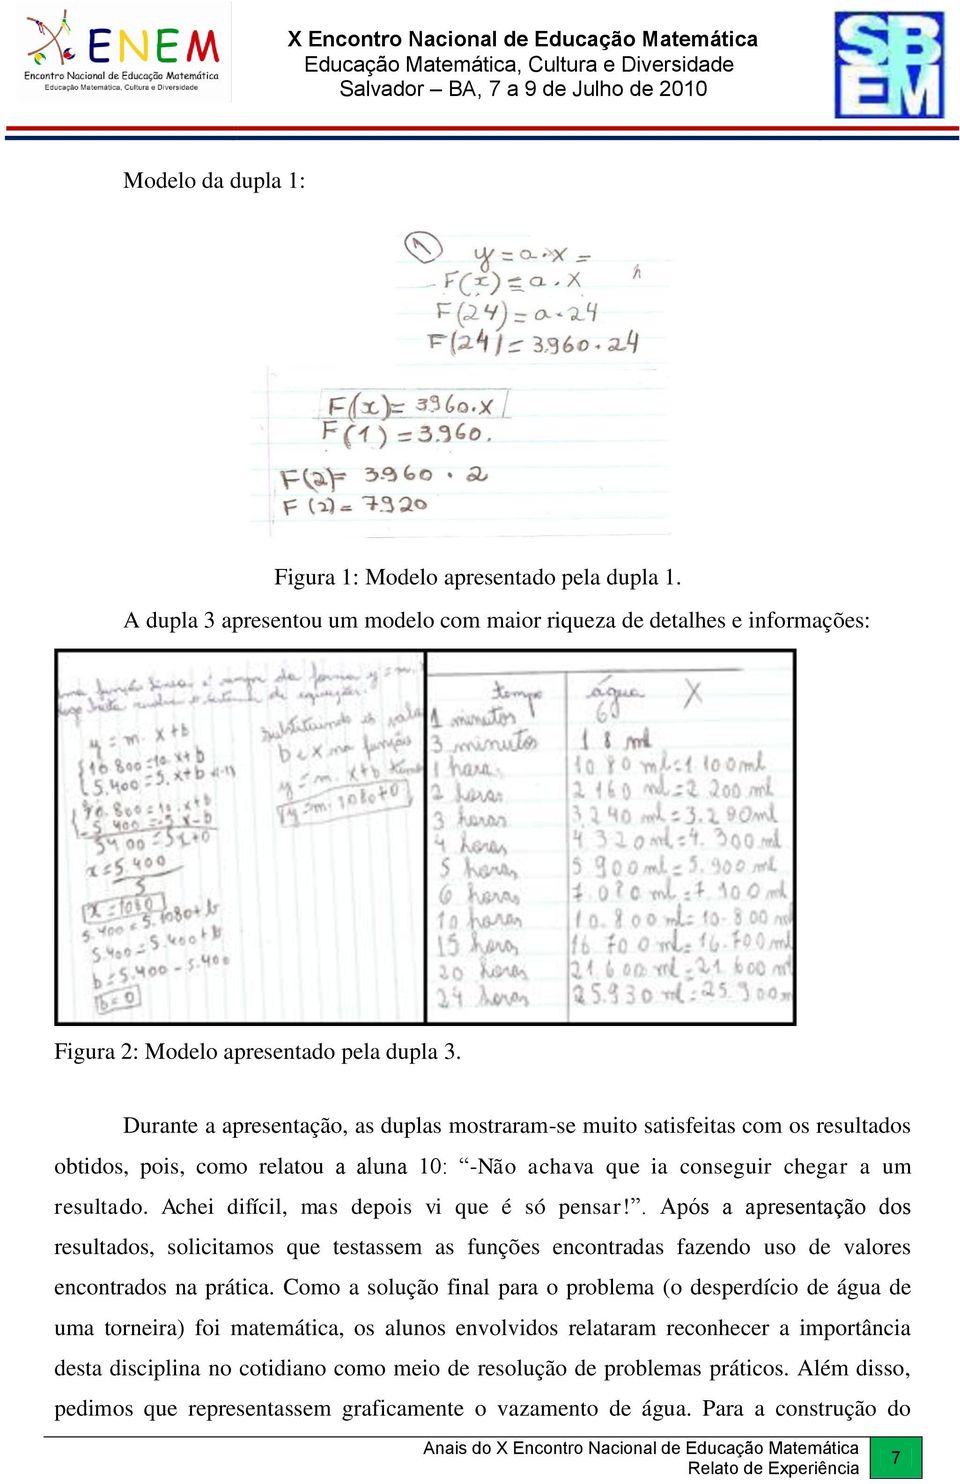 ENEM
Encontro Nacional de Educação Matemática
Educação Matemática, Cultura e Diversidade
X Encontro Nacional de Educação Matemática
Educação Matemática, Cultura e Diversidade
Salvador – BA, 7 a 9 de Julho de 2010
SB
EM
Modelo da dupla 1:
1 y = a . x =
F(x) = a . X
F(24) = a . 24
F(24) = 3.960 . 24
F(x) = 3960 . X
F(1) = 3.960.
F(2) = 3.960 . 2
F(2) = 7.920
Figura 1: Modelo apresentado pela dupla 1.
A dupla 3 apresentou um modelo com maior riqueza de detalhes e informações:
uma função linear é sempre da forma y = m.
logo basta resolver o sistema de equações:
y = m. x + b
10 800 = 10. x + b
5.400 = 5. x + b (-1)
10.800 = 10. x + b
-5 400 = -5 x - b
5400 = 5x + 0
x = 5.400
5
x = 1080
5.400 = 5.1080 + b
5.400 = 5.400 + b
b = 5.400 - 5.400
b = 0
Substituindo os valo
b e x na função
y = m. x + b temos
y = m. 1080 + 0
tempo água X
1 minutos 6
3 minutos 18 ml
1 hora 1080 ml = 1 100 ml
2 horas 2 160 ml = 2 200 ml
3 horas 3.240 ml = 3.290 ml
4 horas 4 320 ml = 4. 300 ml
5 horas 5 900 ml = 5.900 ml
6 horas 7.080 ml = 7 100 ml
10 horas 10.800 ml = 10.800 ml
15 horas 16 700 ml = 16.700 ml
20 horas 21.600 ml = 21 600 ml
24 horas 25.930 ml = 25.900 ml
Figura 2: Modelo apresentado pela dupla 3.
Durante a apresentação, as duplas mostraram-se muito satisfeitas com os resultados
obtidos, pois, como relatou a aluna 10: “-Não achava que ia conseguir chegar a um
resultado. Achei difícil, mas depois vi que é só pensar!”. Após a apresentação dos
resultados, solicitamos que testassem as funções encontradas fazendo uso de valores
encontrados na prática. Como a solução final para o problema (o desperdício de água de
uma torneira) foi matemática, os alunos envolvidos relataram reconhecer a importância
desta disciplina no cotidiano como meio de resolução de problemas práticos. Além disso,
pedimos que representassem graficamente o vazamento de água. Para a construção do
Anais do X Encontro Nacional de Educação Matemática
Relato de Experiência
7